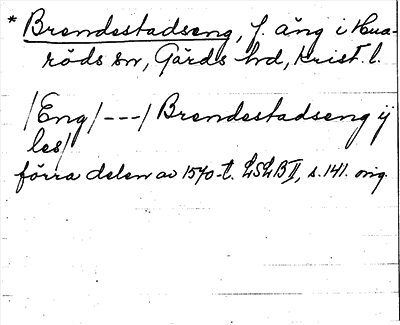 * Brendestadseng, f. äng i Hua-
röds sn, Gärds hd, Krist. l.
/Eng/ --- / Brendestadseng ij
les/
förra delen av 1570-t. LSLB II, s. 141. orig.